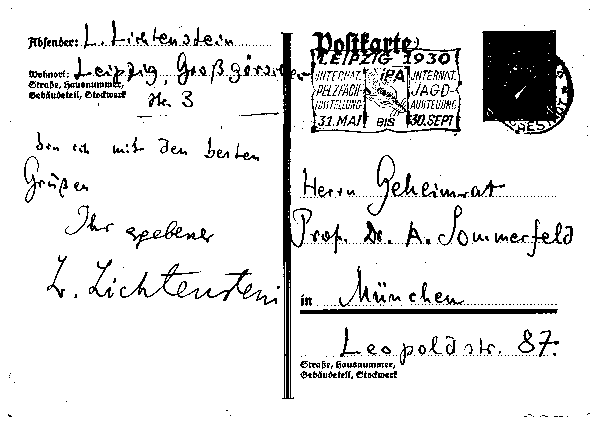 Absender: L. Lichtenstein
Wohnort: Leipzig, Großgörschen
Straße, Hausnummer,
Gebäudeteil, Stockwerk
Str 3
bin ich mit den besten
Grüßen
Ihr ergebener
L. Lichtenstein
Postkarte
LEIPZIG 1930
INTERNAT. IPA INTERNAT.
PELZFACH- JAGD-
AUSSTELLUNG AUSSTELLUNG
31. MAI BIS 30. SEPT
Herrn Geheimrat
Prof. Dr. A. Sommerfeld
in München
Leopoldstr. 87.
Straße, Hausnummer,
Gebäudeteil, Stockwerk